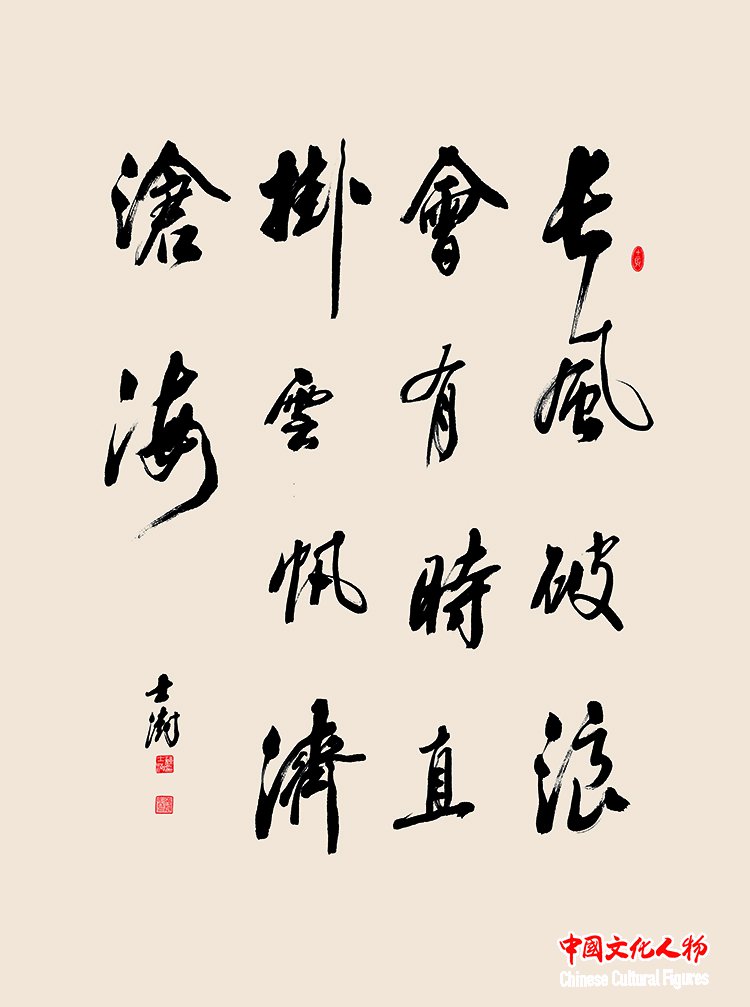 长風破浪
會有時直
掛雲帆濟
滄海
士澍
中國文化人物
Chinese Cultural Figures